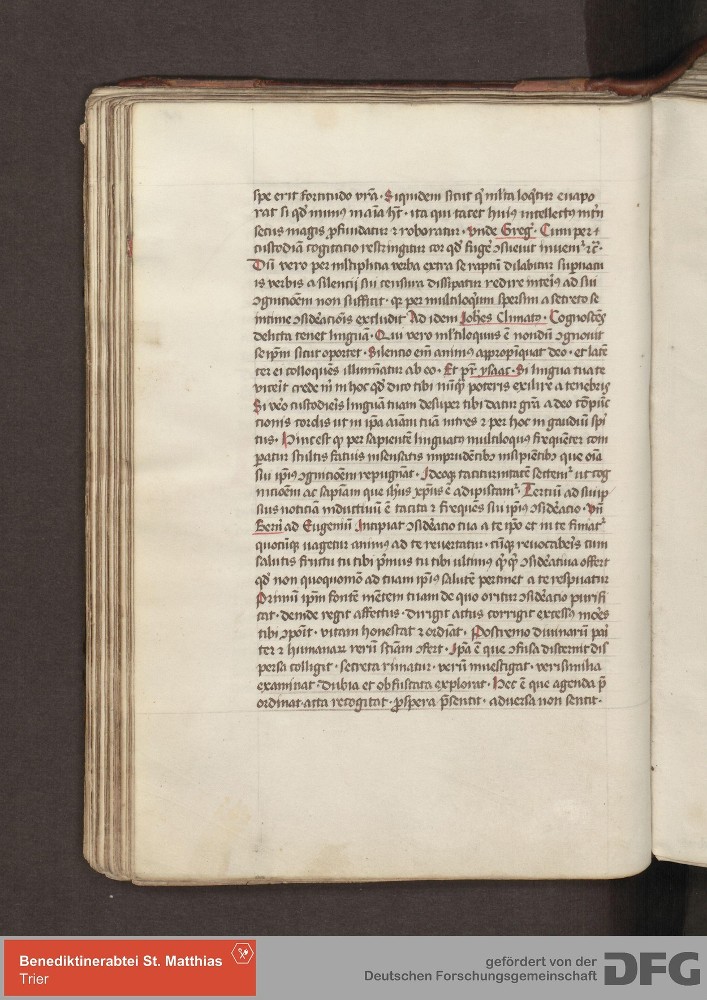 spe erit fortitudo vr̄a · Siquidem sicut q̇ ml̄ta loq̄tur euapo
rat si qd̓ minus in aīa hȝ · ita qui tacet huiꝯ intellectus in
secus magis ꝓfundatur ⁊ roboratur · vnde Greg᷒ · Cum per
custodiā cogitatio restringitur cor qd̓ fuge᷒ ꝯsueuit
Dū vero per ml̄tiplicia verba extra se raptū dilabitur
is verbis a silencij sui censura dissipatur redire interiꝯ ad sui
ꝯgnicōem non sufficit · q̄ per multiloqūm spersim a secreto se
intime ꝯsid̓acōis excludit Ad idem Joh̄es Climaco · Cognoscēs
delicta tenet linguā · Qui vero ml̄tiloquus ē nondū ꝯgnouit
seip̄m sicut oportet · Silencio em̄ animꝯ appropīquat deo · et latē
ter ei colloquēs illumīatur ab eo · Et pr̄ ysaac · Si lingua tua te
vicerit crede m̄ in hoc qd̓ dico tibi nūq̄ poteris exilire a tenebris
Si v̓o custodieris linguā tuam desuper tibi datur gr̄a a deo cōpūc
cionis cordis ut in ip̄a aīam tuā intres ⁊ per hoc in gaudiū spi
tus · Hinc est qȝ per sapientē linguatꝯ multiloquꝯ frequēter com
paratur stultis fatuis insensatis imprudētibꝯ insipiētibꝯ que oīa
sui ip̄iꝯ ꝯgnicōem repugnāt · Ideoqȝ taciturnitatē sectem᷒ ut cog
nicōem ac sapīam que ih̄us xp̄us ē adipiscam᷒ · Terciū ad sui ip
sius noticiā inductiuū ē tacita ⁊ frequēs sui ip̄iꝯ ꝯsid̓acio · Vn̄
Bern̄ ad Eugeniū Incipiat ꝯsid̓acio tua a te ip̄o et in te finiat᷒
quocūqȝ uagetur animꝯ ad te reuertatur · cūqȝ reuocaberis cum
salutis fructu tu tibi p̓mus tu tibi ultimꝯ q̇cq̇d ꝯsid̓atiua offert
qd̓ non quoquomō ad tuam ip̄iꝯ salutē pertinet a te respuatur
Primū ip̄m fontē mētem tuam de quo oritur ꝯsid̓acio purifi
cat · deinde regit affectus · dirigit actus corrigit excessꝯ mo̓es
tibi ꝯpoīt · vitam honestat ⁊ ordiāt · Postremo diuinarū pai
ter ⁊ humanarū rerū sciam ꝯfert · Ip̄a ē que ꝯfusa discernit dis
persa colligit · secreta rimatur · verū inuestigat · verisimilia
examinat · dubia et obfuscata explorat · Hec ē que agenda p̄
ordinat · acta recogitat · ꝓspera p̄sentit · aduersa non sentit ·
Benediktinerabtei St. Matthias
Trier
gefördert von der
Deutschen Forschungsgemeinschaft
DFG